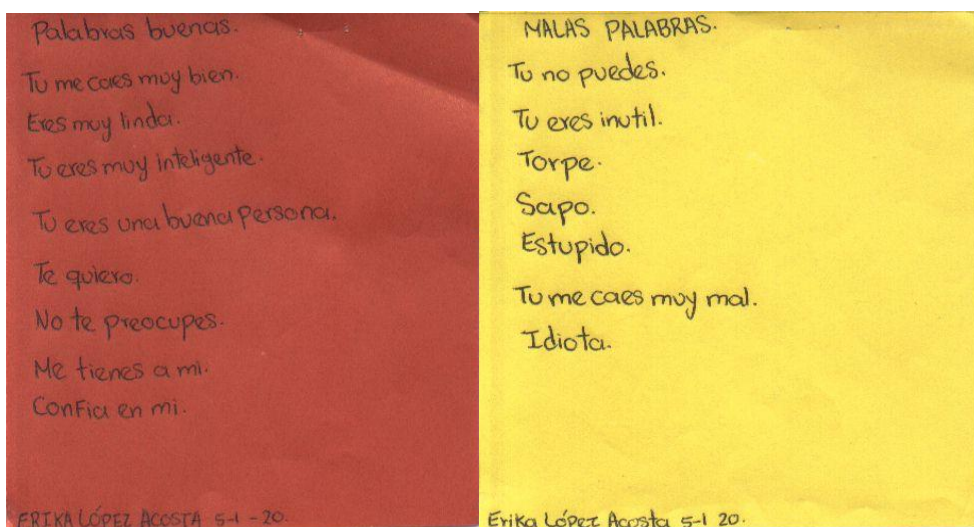 Palabras buenas.
Tu me caes muy bien.
Eres muy linda.
Tu eres muy inteligente.
Tu eres una buena persona.
Te quiero.
No te preocupes.
Me tienes a mi.
Confia en mi.
ERIKA LÓPEZ ACOSTA 5-1-20.
MALAS PALABRAS.
Tu no puedes.
Tu eres inutil.
Torpe.
Sapo.
Estupido.
Tu me caes muy mal.
Idiota.
Erika López Acosta 5-1 20.